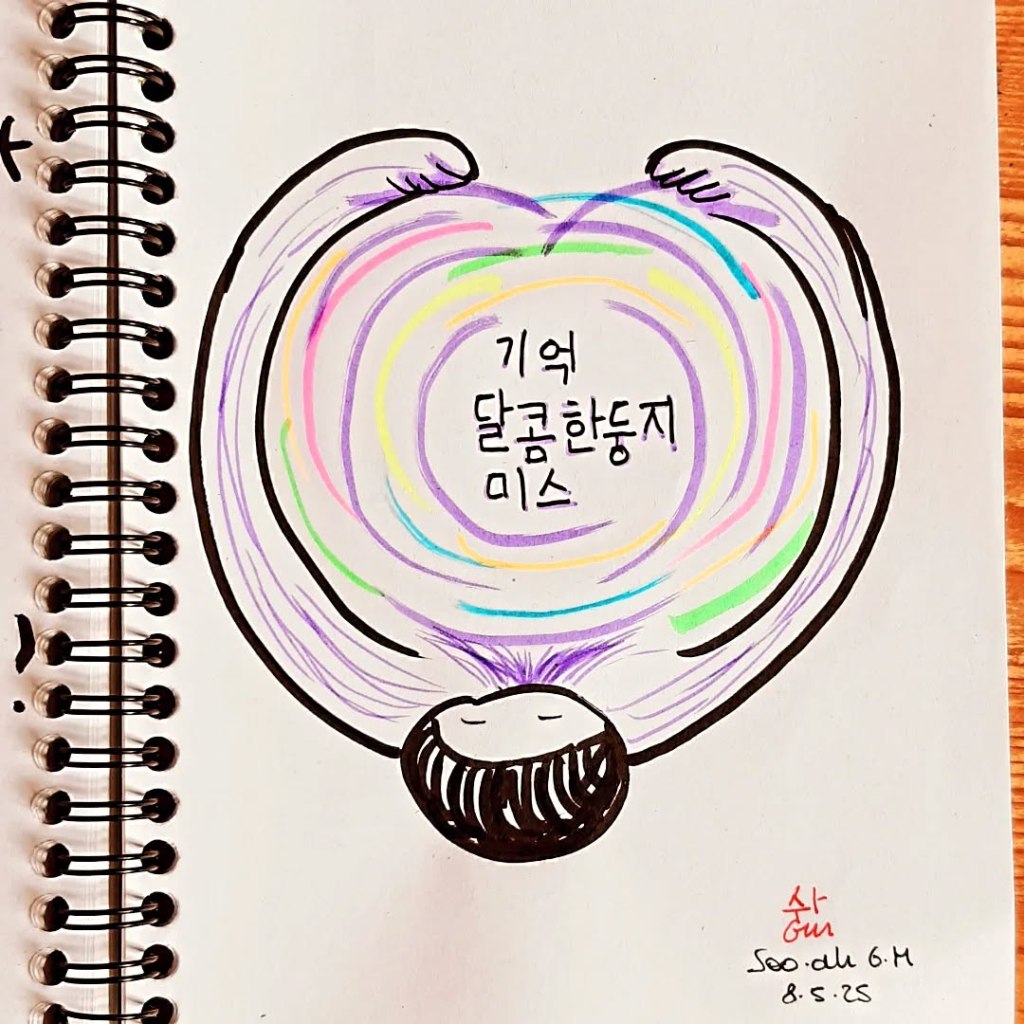 기억
달콤한둥지
미스
Soo.ah G.M
8.5.25